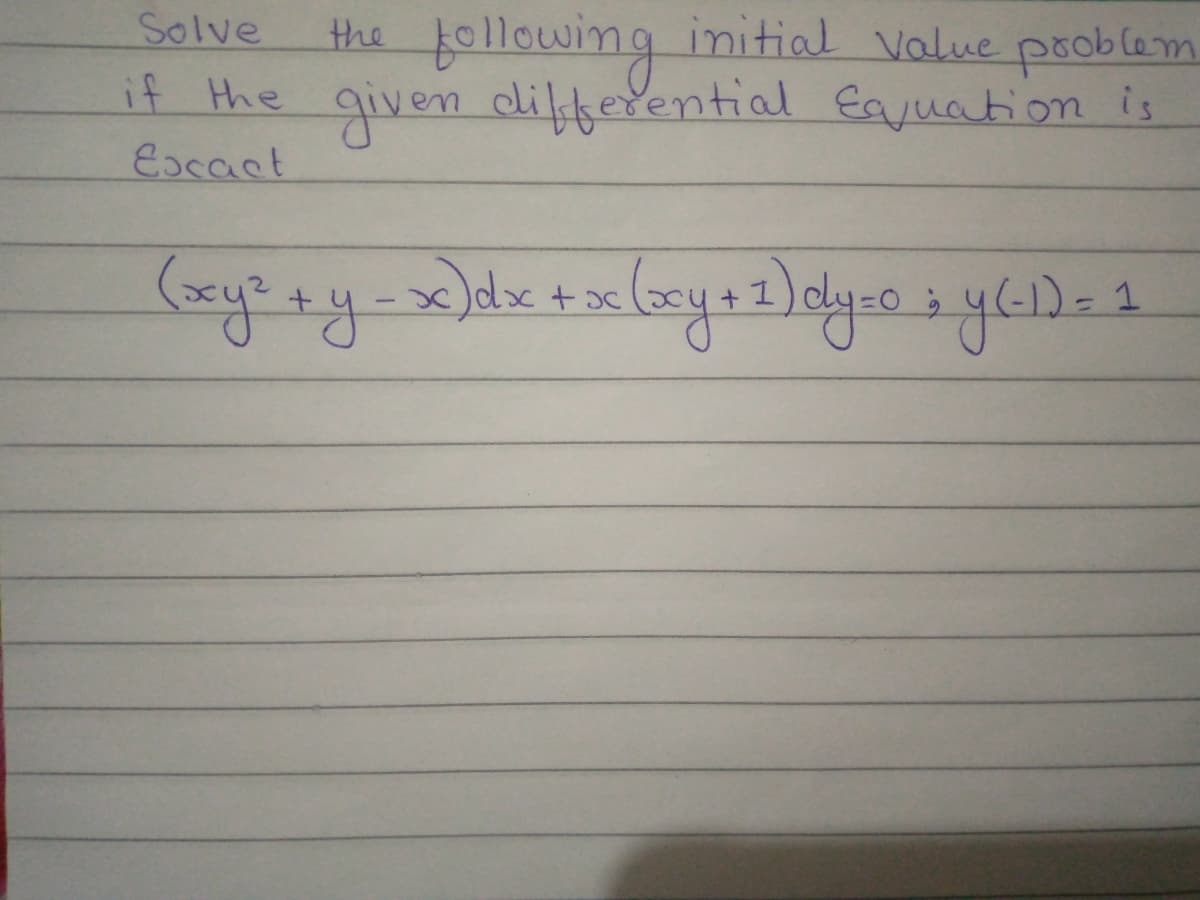 Solve the following initial value problem
if the given differential Equation is
Exact
(xy² + y - x)dx + x(xy + 1) dy=0 ; y(-1) = 1